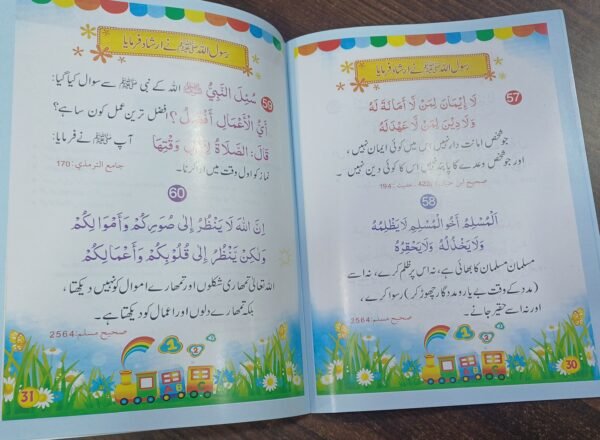 رسول اللہ ﷺ نے ارشاد فرمایا
57
لَا إِيْمَانَ لِمَنْ لَا أَمَانَةَ لَهُ
وَلَا دِيْنَ لِمَنْ لَا عَهْدَ لَهُ
جو شخص امانت دار نہیں اس میں کوئی ایمان نہیں،
اور جو شخص وعدے کا پابند نہیں اس کا کوئی دین نہیں۔
صحیح ابن 422/1 حدیث: 194
58
اَلْمُسْلِمُ أَخُو الْمُسْلِمِ لَا يَظْلِمُهُ
وَلَا يَخْذُلُهُ وَلَا يَحْقِرُهُ
مسلمان مسلمان کا بھائی ہے، نہ اس پر ظلم کرے، نہ اسے
(مدد کے وقت بے یار و مددگار چھوڑ کر) رسوا کرے،
اور نہ اسے حقیر جانے۔
صحیح مسلم: 2564
30
رسول اللہ ﷺ نے ارشاد فرمایا
59
سُئِلَ النَّبِيُّ ﷺ اللہ کے نبی ﷺ سے سوال کیا گیا:
أَيُّ الْأَعْمَالِ أَفْضَلُ؟ افضل ترین عمل کون سا ہے؟
قَالَ: الصَّلَاةُ لِأَوَّلِ وَقْتِهَا آپ ﷺ نے فرمایا:
نماز کو اول وقت میں ادا کرنا۔ جامع الترمذي: 170
60
إِنَّ اللهَ لَا يَنْظُرُ إِلَى صُوَرِكُمْ وَأَمْوَالِكُمْ
وَلَكِنْ يَنْظُرُ إِلَى قُلُوْبِكُمْ وَأَعْمَالِكُمْ
اللہ تعالیٰ تمھاری شکلوں اور تمھارے اموال کو نہیں دیکھتا،
بلکہ تمھارے دلوں اور اعمال کو دیکھتا ہے۔
صحیح مسلم: 2564
1 2
31